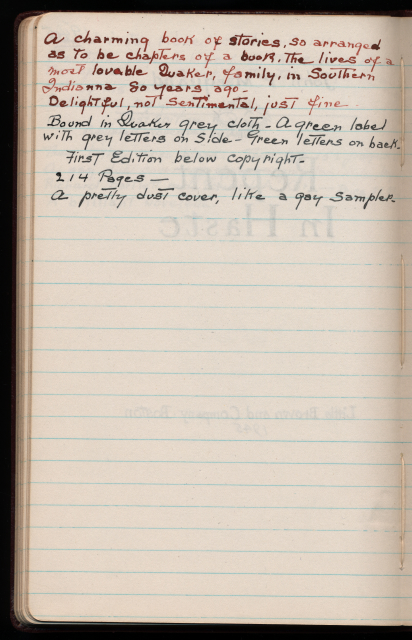 A charming book of stories, so arranged
as to be chapters of a book, the lives of a
most lovable Quaker, family, in Southern
Indianna 80 years ago -
Delightful, not sentimental, just fine
Bound in Quaker grey cloth - A green label
with grey letters on side - Green letters on back.
First Edition below copyright.
214 Pages —
A pretty dust cover, like a gay sampler.